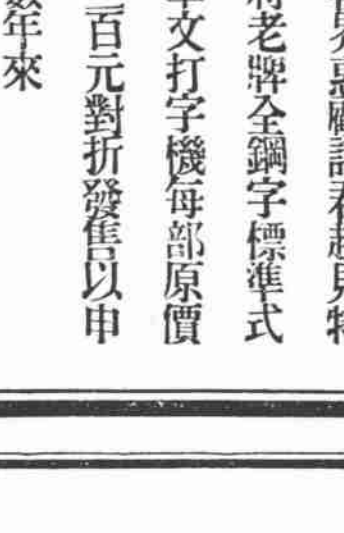 惠顧諸君起見特
將老牌全鋼字標準式
文打字機每部原價
百元對折發售以申
年來